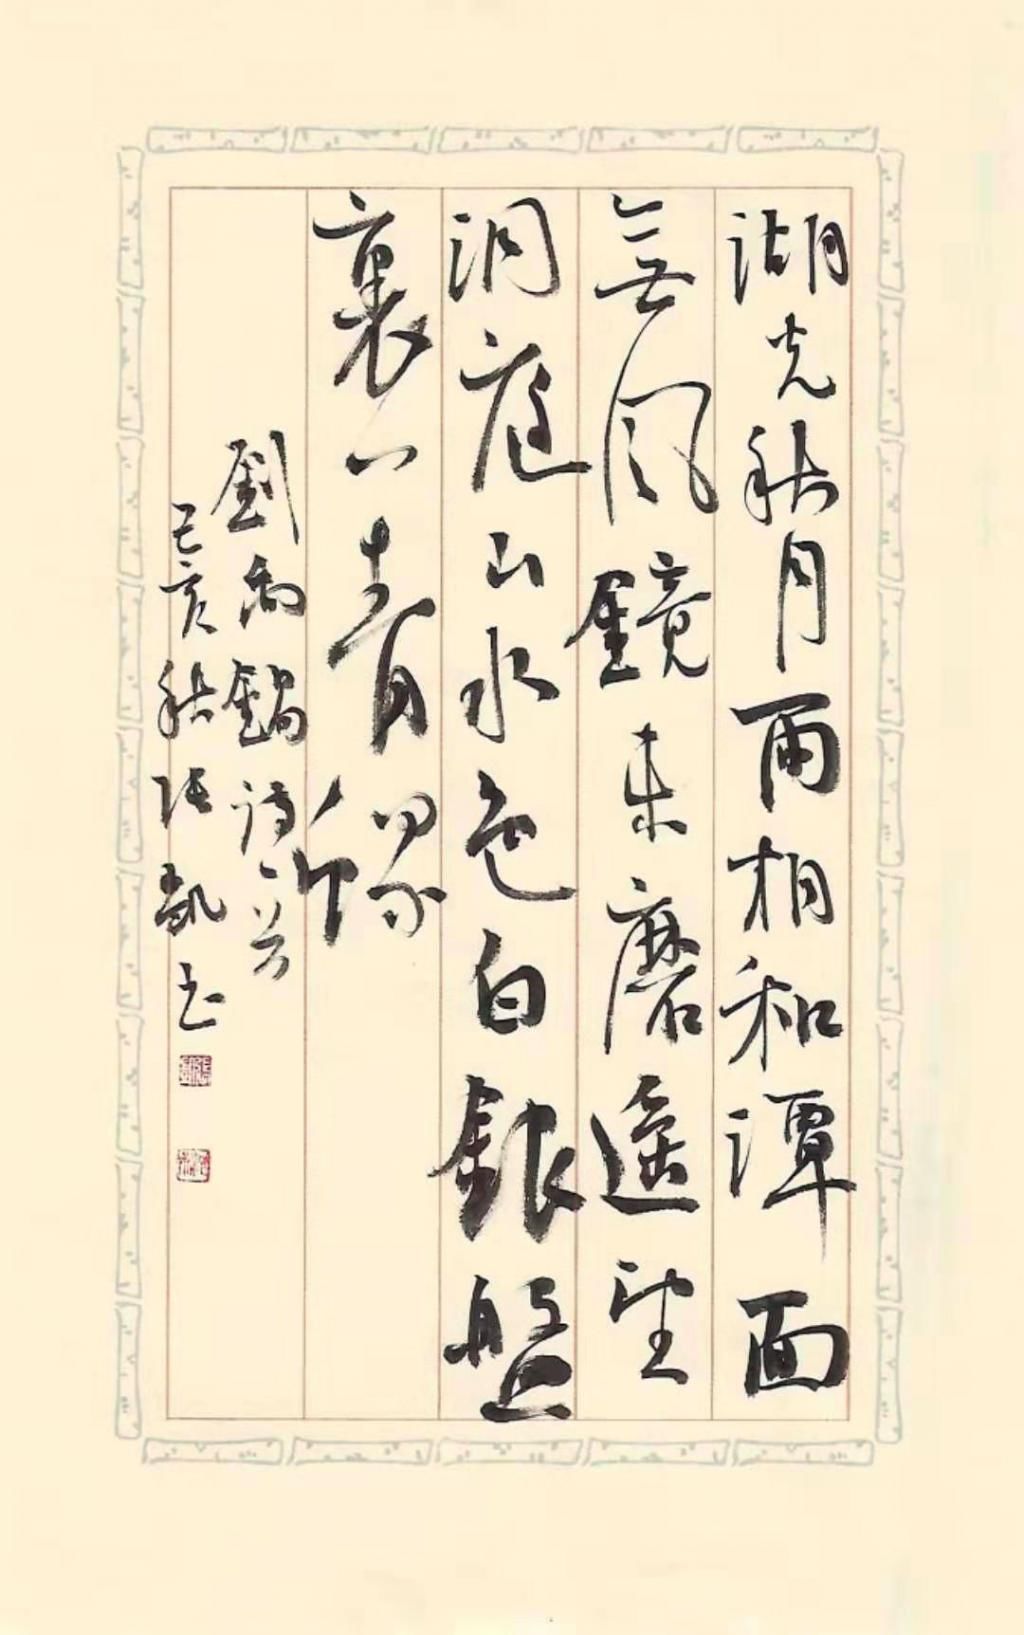 湖光秋月兩相和潭面
無風鏡未磨遙望
洞庭山水色白銀盤
裏一青螺
劉禹錫詩一首
己亥秋張凱書